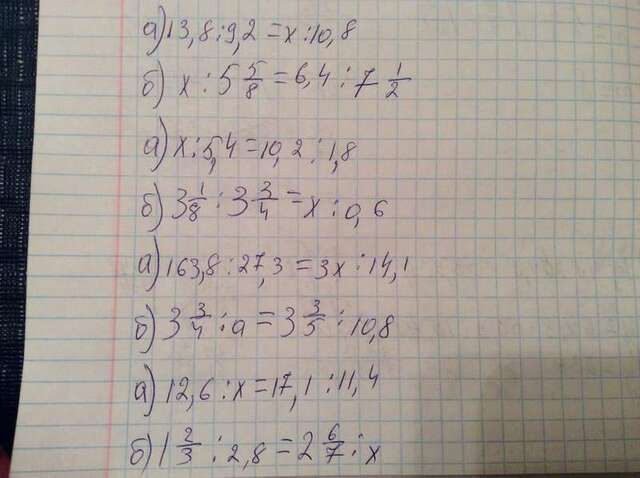 а) 13,8 : 9,2 = x : 10,8
б) x : 5 5/8 = 6,4 : 7 1/2
а) x : 5,4 = 10,2 : 1,8
б) 3 1/8 : 3 3/4 = x : 0,6
а) 163,8 : 27,3 = 3x : 14,1
б) 3 3/4 : a = 3 3/5 : 10,8
а) 12,6 : x = 17,1 : 11,4
б) 1 2/3 : 2,8 = 2 6/7 : x